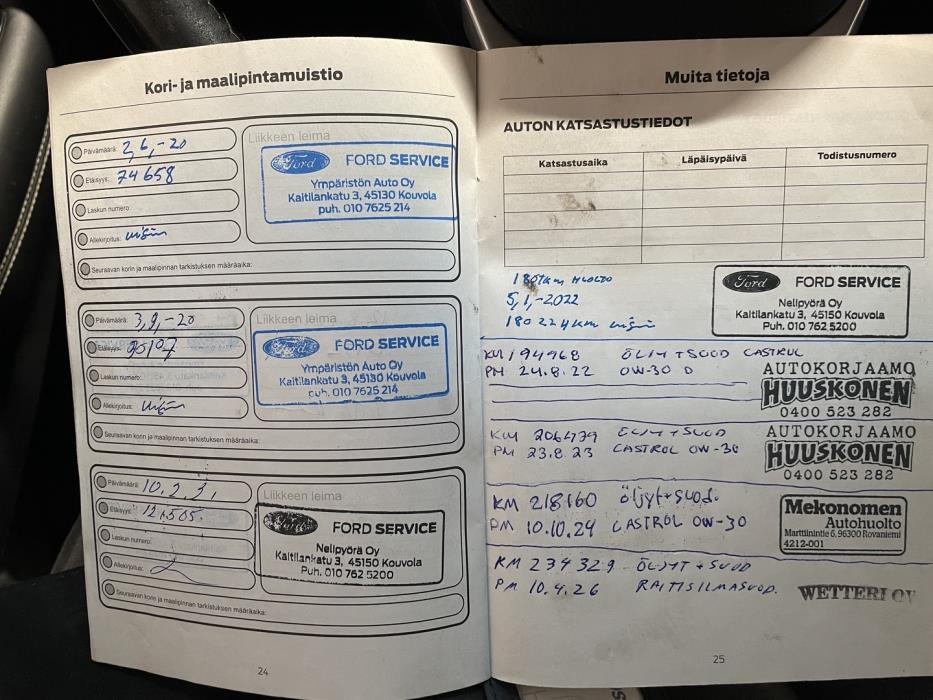 Kori- ja maalipintamuistio
Päivämäärä: 2,6,-20
Etäisyys: 74658
Laskun numero:
Allekirjoitus:
Seuraavan korin ja maalipinnan tarkistuksen määräaika:
Liikkeen leima
Ford FORD SERVICE
Ympäristön Auto Oy
Kaitilankatu 3, 45130 Kouvola
puh. 010 7625 214
Päivämäärä: 3,9,-20
Etäisyys:
Laskun numero:
Allekirjoitus:
Seuraavan korin ja maalipinnan tarkistuksen määräaika:
Liikkeen leima
Ford FORD SERVICE
Ympäristön Auto Oy
Kaitilankatu 3, 45130 Kouvola
puh. 010 7625 214
Päivämäärä:
Etäisyys:
Laskun numero:
Allekirjoitus:
Seuraavan korin ja maalipinnan tarkistuksen määräaika:
Liikkeen leima
Ford FORD SERVICE
Nelipyörä Oy
Kaitilankatu 3, 45150 Kouvola
Puh. 010 762 5200
24
Muita tietoja
AUTON KATSASTUSTIEDOT
Katsastusaika Läpäisypäivä Todistusnumero
HUOLTO
5,1,-2022
180224km
Ford FORD SERVICE
Nelipyörä Oy
Kaitilankatu 3, 45150 Kouvola
Puh. 010 762 5200
KM 194968 ÖLJY+SUOD CASTROL
PM 24.8.22 0W-30 D
AUTOKORJAAMO
HUUSKONEN
0400 523 282
KM 206479 ÖLJYT+SUOD
PM 23.8.23 CASTROL 0W-30
AUTOKORJAAMO
HUUSKONEN
0400 523 282
KM 218160 öljyt+suod.
PM 10.10.24 CASTROL 0W-30
Mekonomen
Autohuolto
Marttiinintie 6, 96300 Rovaniemi
4212-001
KM 234329 ÖLJYT + SUOD
PM 10.4.26 RAITISILMASUOD.
WETTERI OY
25